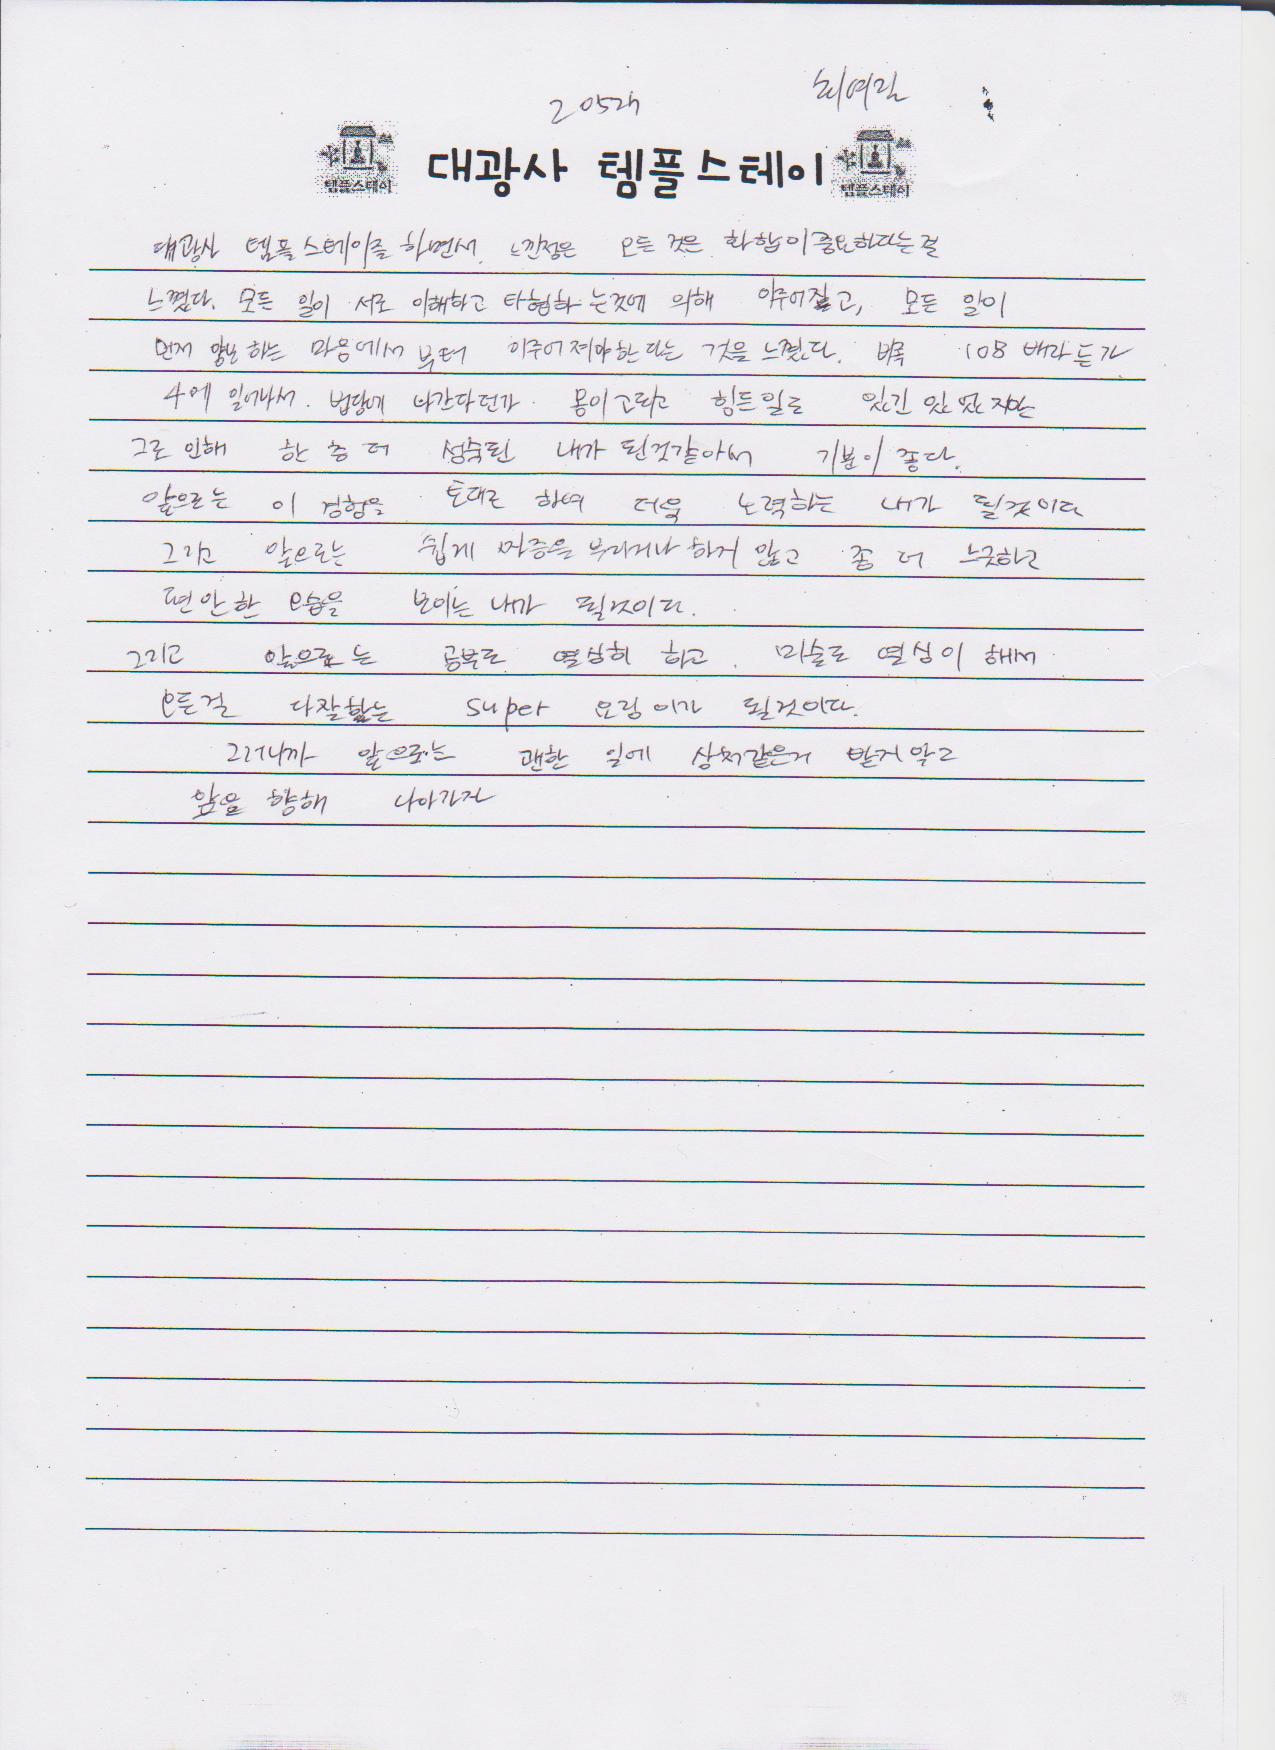 최예림
템플스테이 대광사 템플스테이 템플스테이
대광사 템플스테이를 하면서 느낀점은 모든 것은 화합이 중요하다는 걸
느꼈다. 모든 일이 서로 이해하고 타협하는것에 의해 이루어질고, 모든 일이
먼저 양보하는 마음에서 부터 이루어져야한다는 것을 느꼈다. 비록 108배라든가
4에 일어나서 법당에 나간다던가 몸이고되고 힘든일로 있긴 있었지만
그로 인해 한 층 더 성숙된 내가 된것같아서 기분이 좋다.
앞으로는 이 경험을 토대로 하여 더욱 노력하는 내가 될것이다
그리고 앞으로는 쉽게 짜증을 부리거나 하지 않고 좀 더 느긋하고
편안한 모습을 보이는 내가 될것이다.
그리고 앞으로는 공부도 열심히 하고. 미술도 열심이 해서
모든걸 다잘하는 super 이가 될것이다.
그러니까 앞으로는 괜한 일에 상처같은거 받지 않고
앞을 향해 나아가자